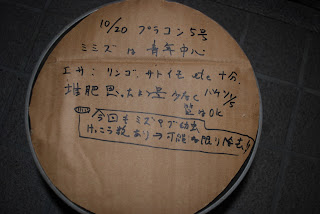 10/20 プラコン5号
ミミズは青年中心
エサ:リンゴ、サトイモ etc 十分
堆肥 思ったより量少なく バケツ1/5
質はOK
今回もミズアブ幼虫
けっこう数あり→可能な限り除去